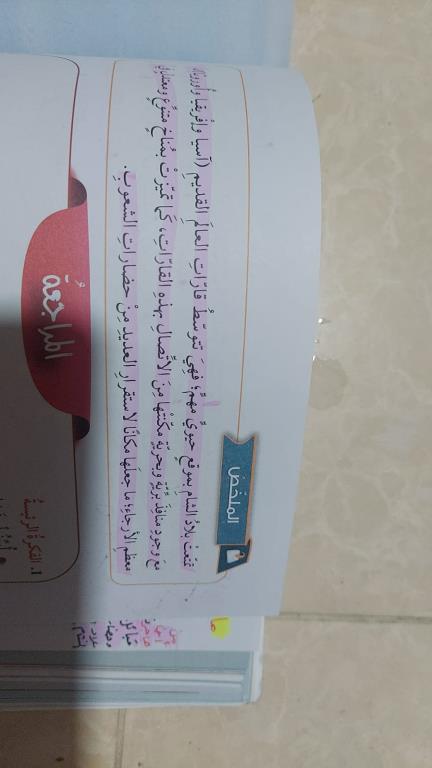 الملخص
تمتعتْ بلادُ الشامِ بموقعٍ حيويٍّ مهمٍّ؛ فهيَ تتوسّطُ قارّاتِ العالَمِ القديمِ (آسيا وإفريقيا وأوروبا)،
معَ وجودِ منافذَ برّيّةٍ وبحريّةٍ مكّنتْها مِنَ الاتّصالِ بهذِهِ القارّاتِ، كَما تميّزتْ بمُناخٍ متنوّعٍ ومعتدلٍ في
معظمِ الأرجاءِ؛ ما جعلَها مكانًا لاستقرارِ العديدِ مِنْ حضاراتِ الشعوبِ.
المراجعةُ
1. الفكرةُ الرئيسةُ